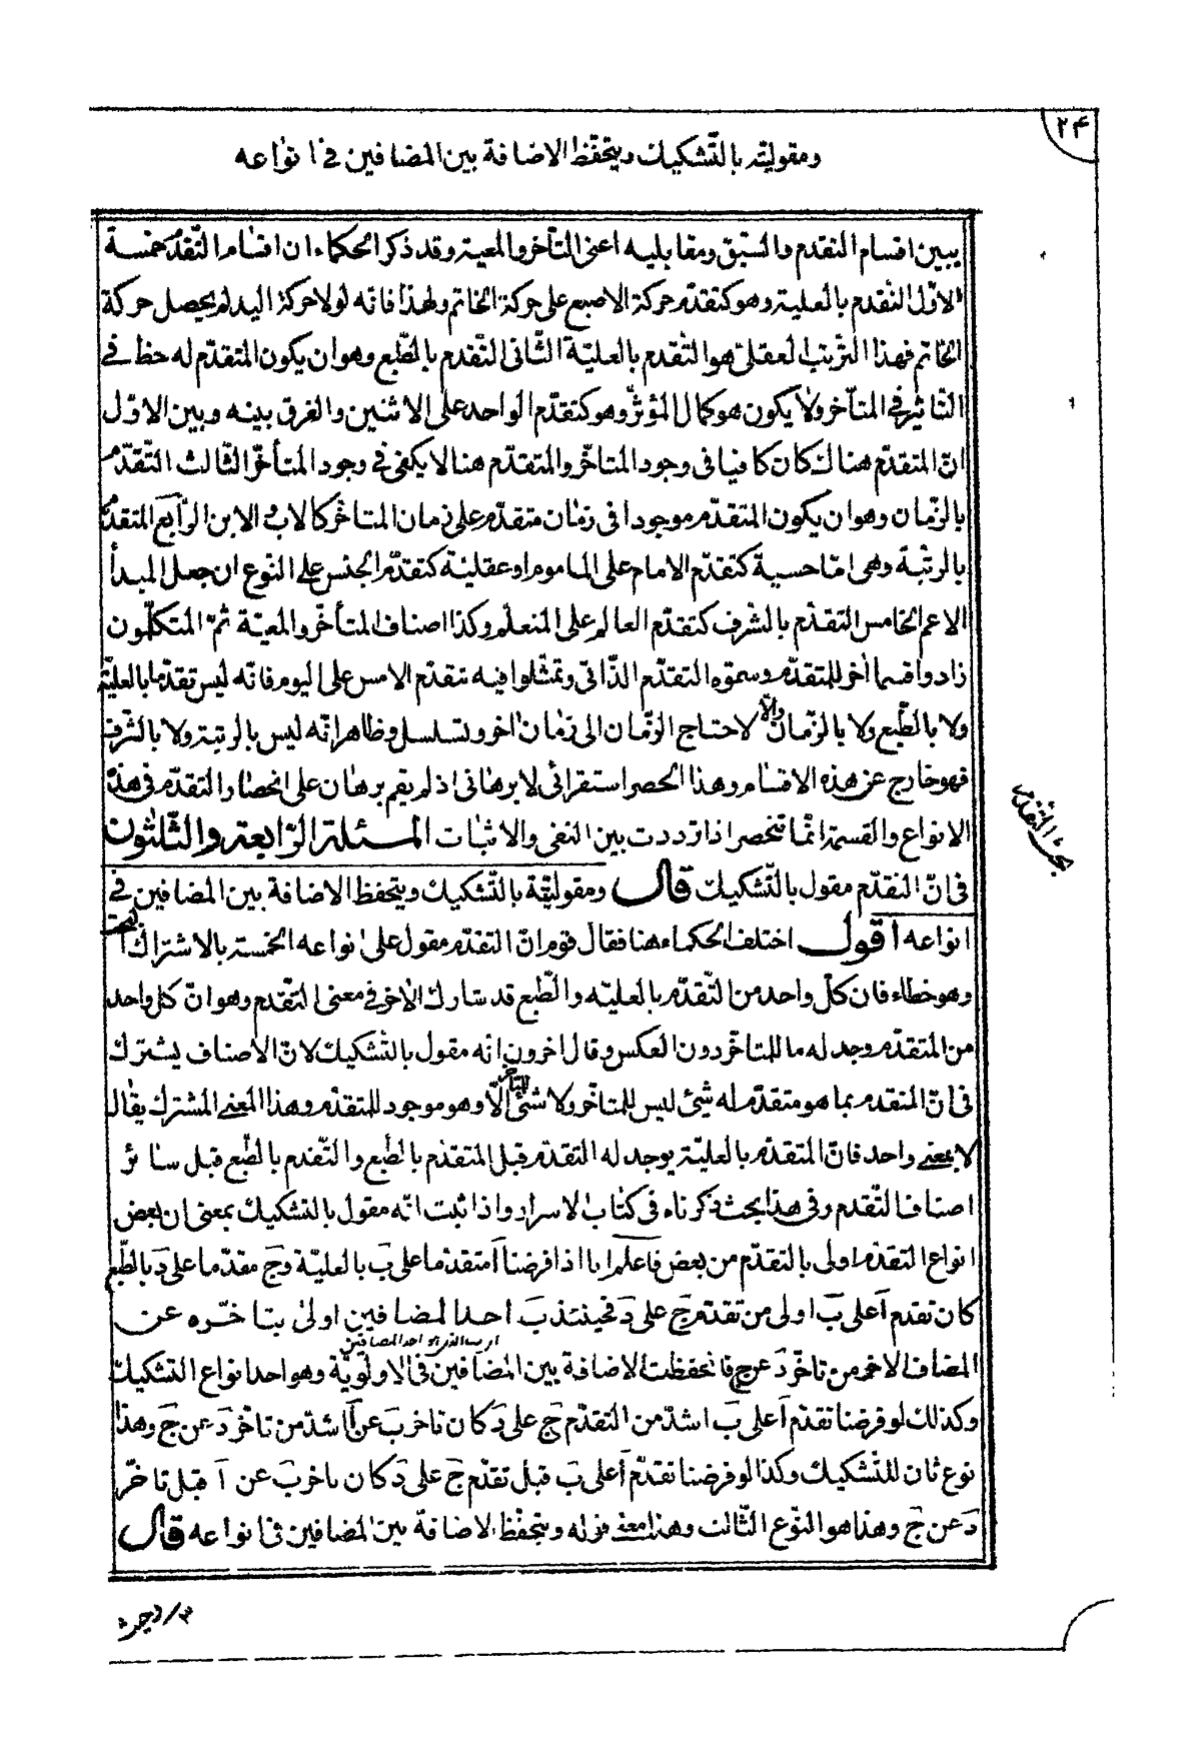 ۲۴
ومقوليته بالتّشكيك ويتحفّظ الاضافة بين المضافين فى انواعه
يبين اقسام التقدم والسّبق ومقابليه اعنى التأخر والمعية وقد ذكر الحكماء ان اقسام التّقدّم خمسة
الاوّل التّقدم بالعلية وهو كتقدّم حركة الاصبع على حركة الخاتم ولهذا فانه لولا حركة اليد لم يحصل حركة
الخاتم فهذا الترتيب العقلىّ هو التّقدم بالعليّة الثّانى التّقدم بالطّبع وهو ان يكون المتقدّم له حظ فى
التّاثير فى المتأخر ولا يكون هو كمال المؤثرّ وهو كتقدّم الواحد على الاثنين والفرق بينه وبين الاوّل
انّ المتقدّم هناك كان كافيا فى وجود المتاخّر والمتقدّم هنا لا يكفى فى وجود المتأخّر الثّالث التّقدّم
بالزّمان وهو ان يكون المتقدّم موجودا فى زمان متقدّم على زمان المتاخّر كالاب والابن الرّابع المتقدّم
بالرتبة وهى امّا حسية كتقدّم الامام على الماموم او عقلية كتقدّم الجنس على النّوع ان جعل المبدأ
الاعم الخامس التقدّم بالشّرف كتقدّم العالم على المتعلّم وكذا اصناف المتأخّر والمعيّة ثمّ المتكلّمون
زادوا قسما اخر للمتقدّم وسمّوه التقدّم الذّاتى وتمثّلوا فيه بتقدّم الامس على اليوم فانّه ليس تقدّما بالعليّة
ولا بالطّبع ولا بالزّمان والّا لاحتاج الزّمان الى زمان اخر وتسلسل وظاهر انّه ليس بالرتبة ولا بالشّرف
فهو خارج عن هذه الاقسام وهذا الحصر استقرائى لا برهانى اذ لم يقم برهان على انحصار التقدّم فى هذه
الانواع والقسمة انّما تنحصر اذا ترددت بين النفى والاثبات المسئلة الرّابعة والثّلثون
فى انّ التقدّم مقول بالتّشكيك قال ومقوليّة بالتّشكيك ويتحفظ الاضافة بين المضافين فى
انواعه اقول اختلف الحكماء هنا فقال قوم انّ التقدّم مقول على انواعه الخمسة بالاشتراك البحت
وهو خطاء فان كلّ واحد من التّقدّم بالعليّه والطّبع قد شارك الاخر فى معنى التّقدم وهو انّ كلّ واحد
من المتقدّم وجد له ما للمتاخّر دون العكس وقال اخرون انّه مقول بالتّشكيك لانّ الاصناف يشترك
فى انّ المتقدم بما هو متقدّم له شئ ليس للمتاخّر ولا شئ للمتاخر الّا وهو موجود للمتقدّم وهذا المعنى المشترك يقال
لا بمعنى واحد فانّ المتقدّم بالعليّة يوجد له التقدّم قبل المتقدّم بالطّبع والتّقدم بالطّبع قبل سائر
اصناف التّقدم وفى هذا بحث ذكرناه فى كتاب الاسرار واذا ثبت انّه مقول بالتشكيك بمعنى ان بعض
انواع التقدّم اولى بالتقدّم من بعض فاعلم انا اذا فرضنا آ متقدّما على بَ بالعليّة وجَ مقدّما على دَ بالطّبع
كان تقدم آ على بَ اولى من تقدّم جَ على دَ فحينئذ بَ احد المضافين اولى بتاخّره عن
المضاف الاخر من تاخّر دَ عن جَ فانحفظت الاضافة بين المضافين فى الاولويّة وهو احد انواع التشكيك
وكذلك لو فرضنا تقدّم آ على بَ اشدّ من التقدّم جَ على دَ كان تاخر بَ عن آ اشدّ من تاخّر دَ عن جَ وهذا
نوع ثان للتّشكيك وكذا لو فرضنا تقدّم آ على بَ قبل تقدّم جَ على دَ كان تاخر بَ عن آ قبل تاخّر
دَ عن جَ وهذا هو النّوع الثّالث وهذا معنى قوله ويتحفّظ الاضافة بين المضافين فى انواعه قال
بحث التقدم